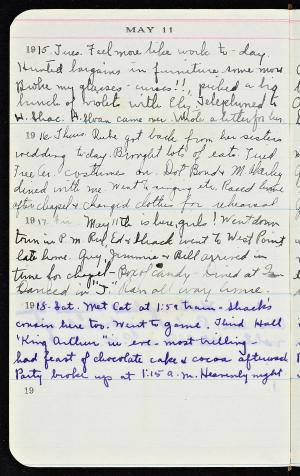 MAY 11
1915. Tues. Feel more like work to-day.
Hunted bargains in furniture some more
Broke my glasses - curses!!, picked a big
bunch of violets with Ely. Telephoned to
H. Shac. H. Sloan came over. Whole letter for
1916. Thurs. Rube got back from her sisters
wedding to-day. Brought lots of eats. Tried
Tree Cer. costumes on. Dot Bond & M.
dined with me. Went to singing etc. Raced home
after chapel & changed clothes for rehearsal
1917. Fri. May 11th is here, girls! Went down
town in P.M. Ed & Shack went to West Point
late home. Guy, Jimmie & Bill arrived in
time for chapel - Box of Candy - Dined at Inn
Danced in "J." Ran all way home.
1918. Sat. Met Cat at 1:59 train - Shack's
cousin here too. Went to game. Third Hall
"King Arthur" in eve - most trilling -
had feast of chocolate cake & cocoa afterward
Party broke up at 1:15 a.m. Heavenly night
19